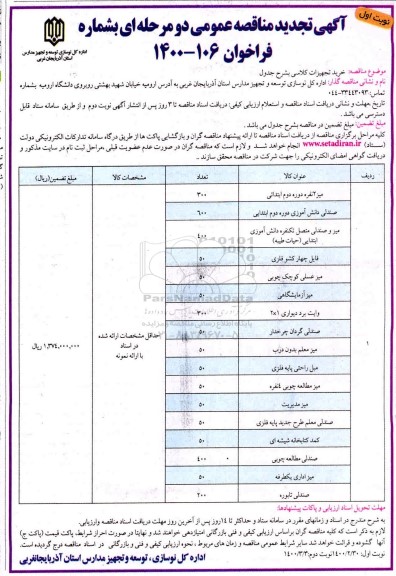 نوبت اول
آگهی تجدید مناقصه عمومی دو مرحله ای بشماره
فراخوان ۱۰۶-۱۴۰۰
اداره کل نوسازی توسعه و تجهیز مدارس
استان آذربایجان غربی
موضوع مناقصه: خرید تجهیزات کلاسی بشرح جدول
نام و نشانی مناقصه گذار: اداره کل نوسازی توسعه و تجهیز مدارس استان آذربایجان غربی به آدرس ارومیه خیابان شهید بهشتی روبروی دانشگاه ارومیه بشماره
تماس: ۰۴۴-۳۳۴۴۳۰۹۳
تاریخ مهلت و نشانی دریافت اسناد مناقصه و استعلام ارزیابی کیفی: دریافت اسناد مناقصه تا ۳ روز پس از انتشار آگهی نوبت دوم و از طریق سامانه ستاد قابل
دسترسی می باشد.
مبلغ تضمین: مبلغ تضمین در مناقصه بشرح جدول می باشد.
کلیه مراحل برگزاری مناقصه از دریافت اسناد مناقصه تا ارائه پیشنهاد مناقصه گران و بازگشایی پاکت ها از طریق درگاه سامانه تدارکات الکترونیکی دولت
(ستاد) www.setadiran.ir انجام خواهد شد و لازم است که مناقصه گران در صورت عدم عضویت قبلی، مراحل ثبت نام در سایت مذکور و
دریافت گواهی امضای الکترونیکی را جهت شرکت در مناقصه محقق سازند.
ردیف عنوان کالا تعداد مشخصات کالا مبلغ تضمین(ریال)
میز ۲نفره دوره دوم ابتدائی ۳۰۰
صندلی دانش آموزی دوره دوم ابتدایی ۶۰۰
میز و صندلی متصل تکنفره دانش آموزی
ابتدایی (حیات طیبه) ۴۰۰
فایل چهار کشو فلزی ۵۰
میز عسلی کوچک چوبی ۵۰
میز آزمایشگاهی ۵۰
وایت برد دیواری ۱×۲ ۳۰۰
صندلی گردان چرخدار ۵۰
۱ میز معلم بدون درب ۵۰ حداقل مشخصات ارائه شده در اسناد با ارائه نمونه ۱,۳۷۴,۰۰۰,۰۰۰ ریال
مبل راحتی پایه فلزی ۵۰
میز مطالعه چوبی ۶نفره ۵۰
میز مدیریت ۵۰
صندلی معلم طرح جدید پایه فلزی ۵۰
کمد کتابخانه شیشه ای ۵۰
صندلی مطالعه چوبی ۴۰۰
میز اداری یکطرفه ۵۰
صندلی تابوره ۲۰۰
مهلت تحویل اسناد ارزیابی و پاکات پیشنهادها:
به شرح مندرج در اسناد و زمانهای مقرر در سامانه ستاد و حداکثر تا ۱۴ روز پس از آخرین روز مهلت دریافت اسناد مناقصه وارزیابی.
لازم به ذکر است که کلیه مناقصه گران براساس ارزیابی کیفی و فنی بازرگانی امتیازدهی خواهند شد و نهایتا در صورت احراز شرایط، پاکت قیمت (پاکت ج)
آنها گشوده و قرائت خواهد شد سایر شرایط عمومی مناقصه و زمان های مربوط، نحوه ارزیابی کیفی و فنی و بازرگانی در اسناد مناقصه درج گردیده است.
نوبت اول: ۱۴۰۰/۲/۳۰ نوبت دوم: ۱۴۰۰/۳/۳
اداره کل نوسازی، توسعه و تجهیز مدارس استان آذربایجانغربی